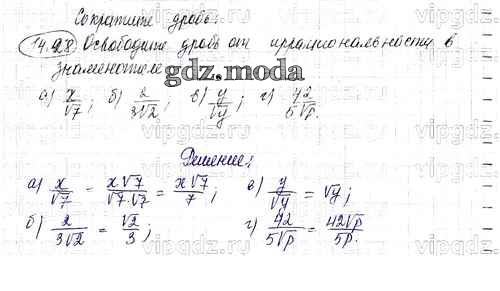 Сократите дробь:
14.28 Освободите дробь от иррациональности в
знаменателе
gdz.moda
а) x/√7; б) 2/3√2; в) y/√y; г) 42/5√p.
Решение:
а) x/√7 = x√7/√7·√7 = x√7/7; в) y/√y = √y;
б) 2/3√2 = √2/3; г) 42/5√p = 42√p/5p.
vipgdz.ru